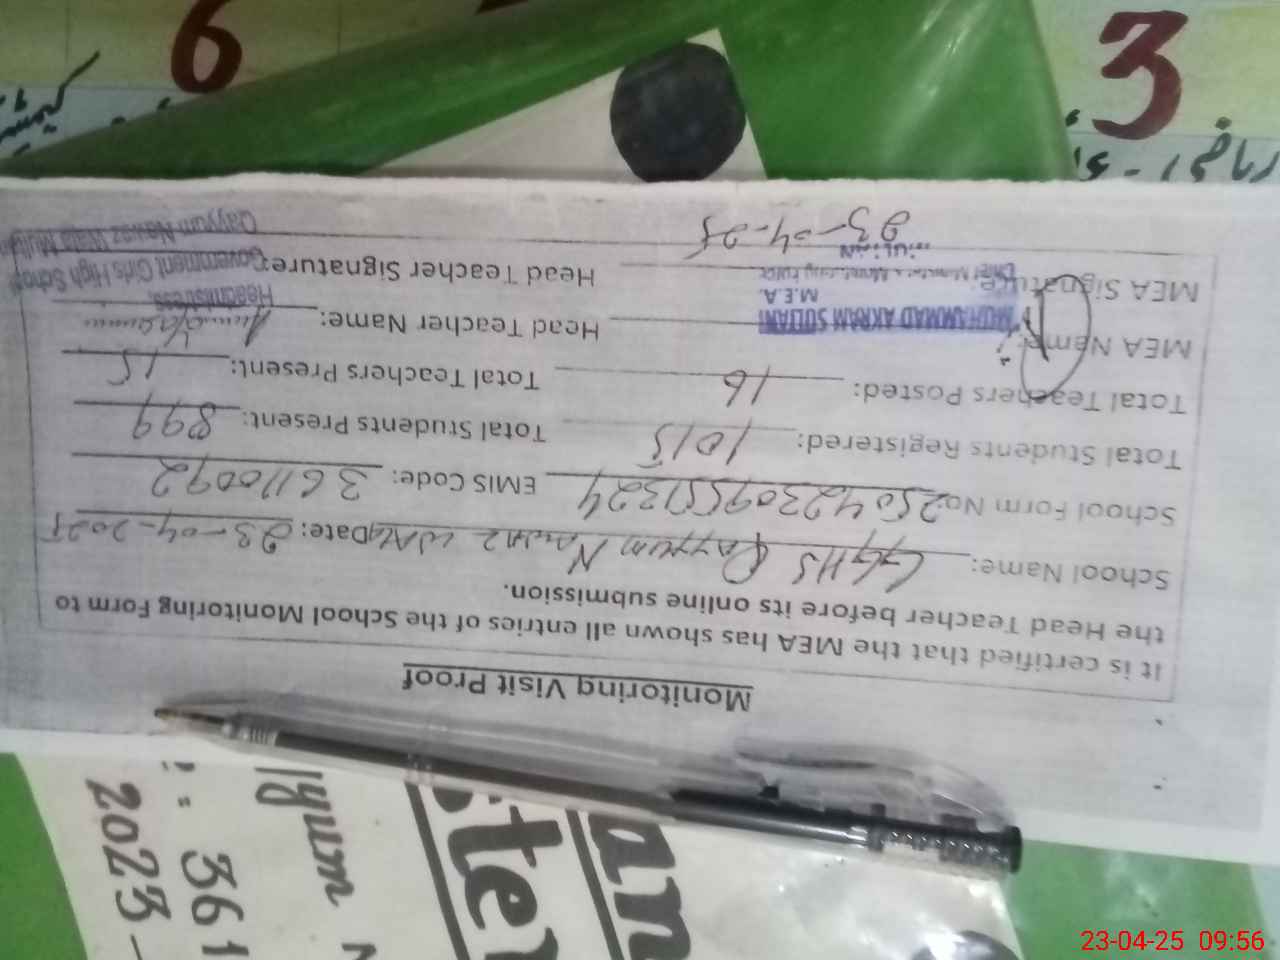 Monitoring Visit Proof
It is certified that the MEA has shown all entries of the School Monitoring Form to
the Head Teacher before its online submission.
School Name: GGHS Qayyum Nawaz Wala Date: 23-04-2025
School Form No: 25042309551324 EMIS Code: 36110092
Total Students Registered: 1015 Total Students Present: 899
Total Teachers Posted: 16 Total Teachers Present: 15
MEA Name: MUHAMMAD AKRAM SULTANI Head Teacher Name:
M.E.A.
MEA Signature: Head Teacher Signature:
Chief Minister's Monitoring Force
Headmistress
Government Girls High School
Qayyum Nawaz Wala Multan
23-04-25
6
3
ریاضی
an
ster
yum N
: 361
2023-
23-04-25 09:56